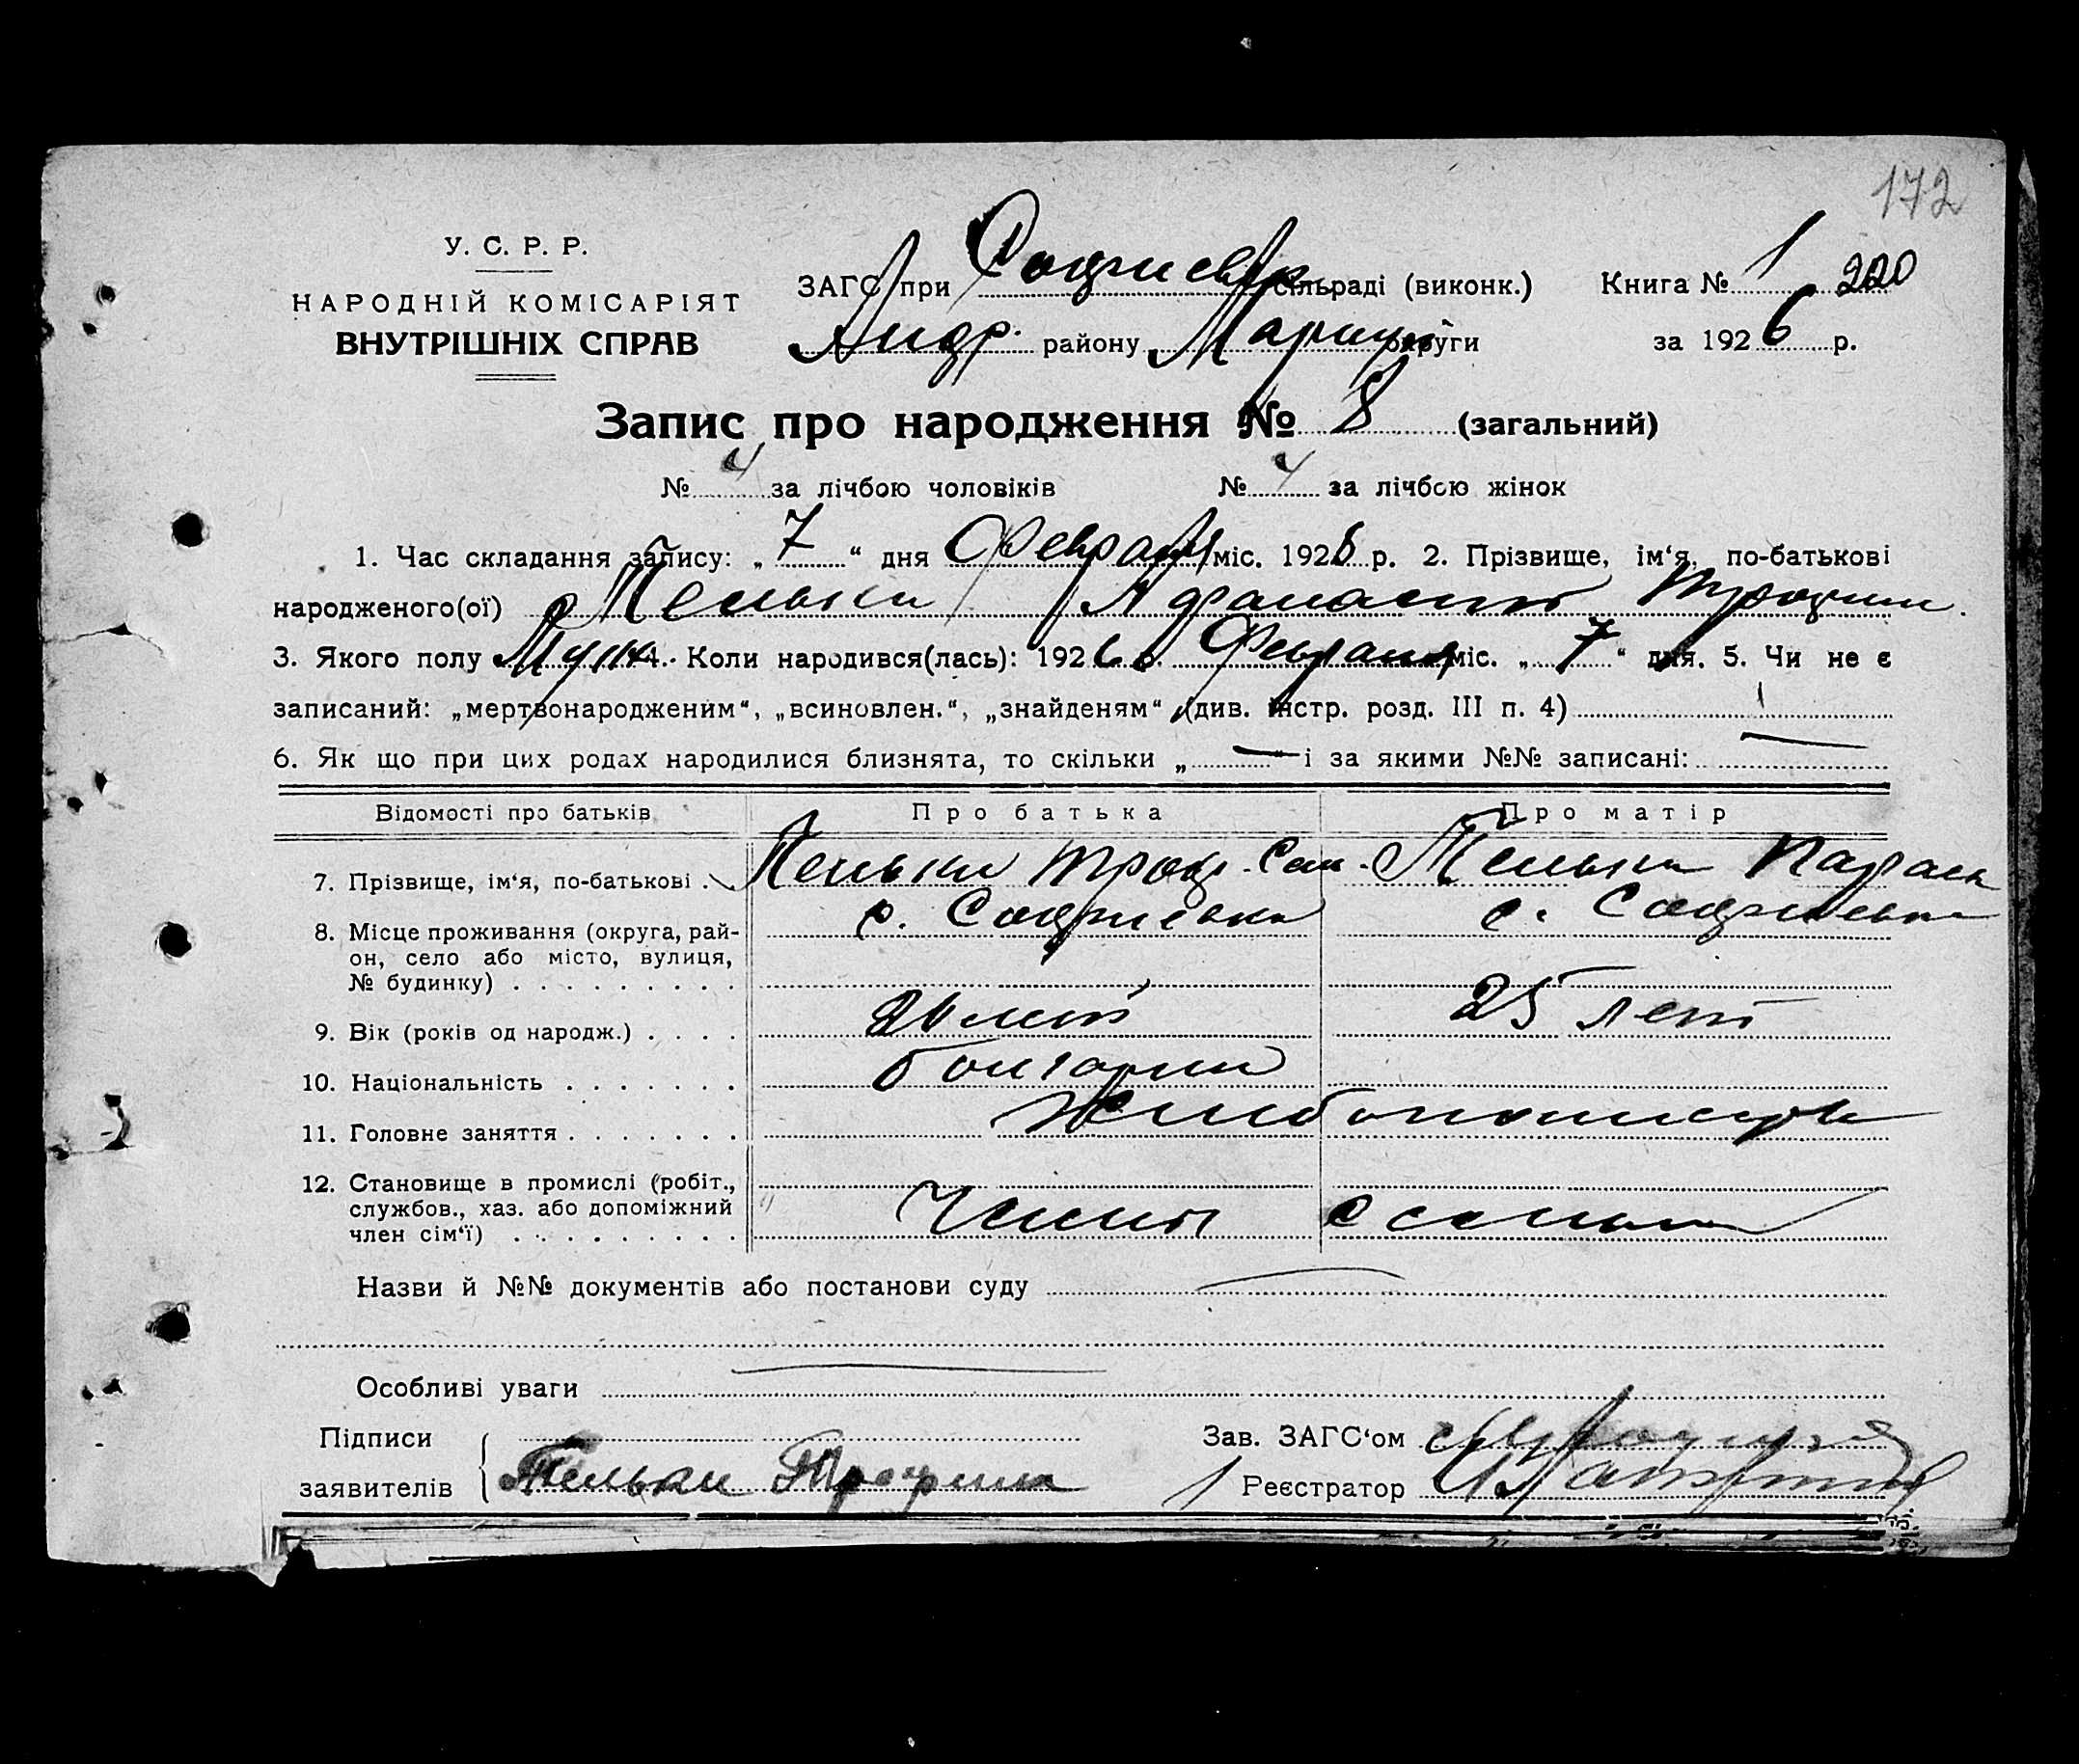 172
У. С. Р. Р.
НАРОДНІЙ КОМІСАРІЯТ
ВНУТРІШНІХ СПРАВ
ЗАГС при Софиевск. сільраді (виконк.) Книга № 1 220
Андр. району Мариуп. округи за 1926 р.
Запис про народження № 8 (загальний)
№ 4 за лічбою чоловіків № 4 за лічбою жінок
1. Час складання запису: „ 7 “ дня Февраля міс. 1926 р. 2. Прізвище, ім‘я, по-батькові
народженого(ої) Пеньки Афанасий Трофим.
3. Якого полу Муж. 4. Коли народився(лась): 1926 р. Февраля міс. „ 7 “ дня. 5. Чи не є
записаний: „мертвонародженим“, „всиновлен.“, „знайденям“ (див. інстр. розд. III п. 4)
6. Як що при цих родах народилися близнята, то скільки „ — “ і за якими №№ записані: —
Відомості про батьків Про батька Про матір
7. Прізвище, ім‘я, по-батькові . Пеньки Троф. Сем. Пеньки
8. Місце проживання (округа, рай-
он, село або місто, вулиця,
№ будинку) . . . . . . . . . с. Софиевка с. Софиевка
9. Вік (років од народж.) . . . . 26 лет 25 лет
10. Національність . . . . . . . болгарин
11. Головне заняття . . . . . . . Хлебопашество
12. Становище в промислі (робіт.,
службов., хаз. або допоміжний
член сім‘ї) . . . . . . . . . Члены семьи
Назви й №№ документів або постанови суду —
Особливі уваги —
Підписи
заявителів Пеньки Трофим
Зав. ЗАГС‘ом
Реєстратор